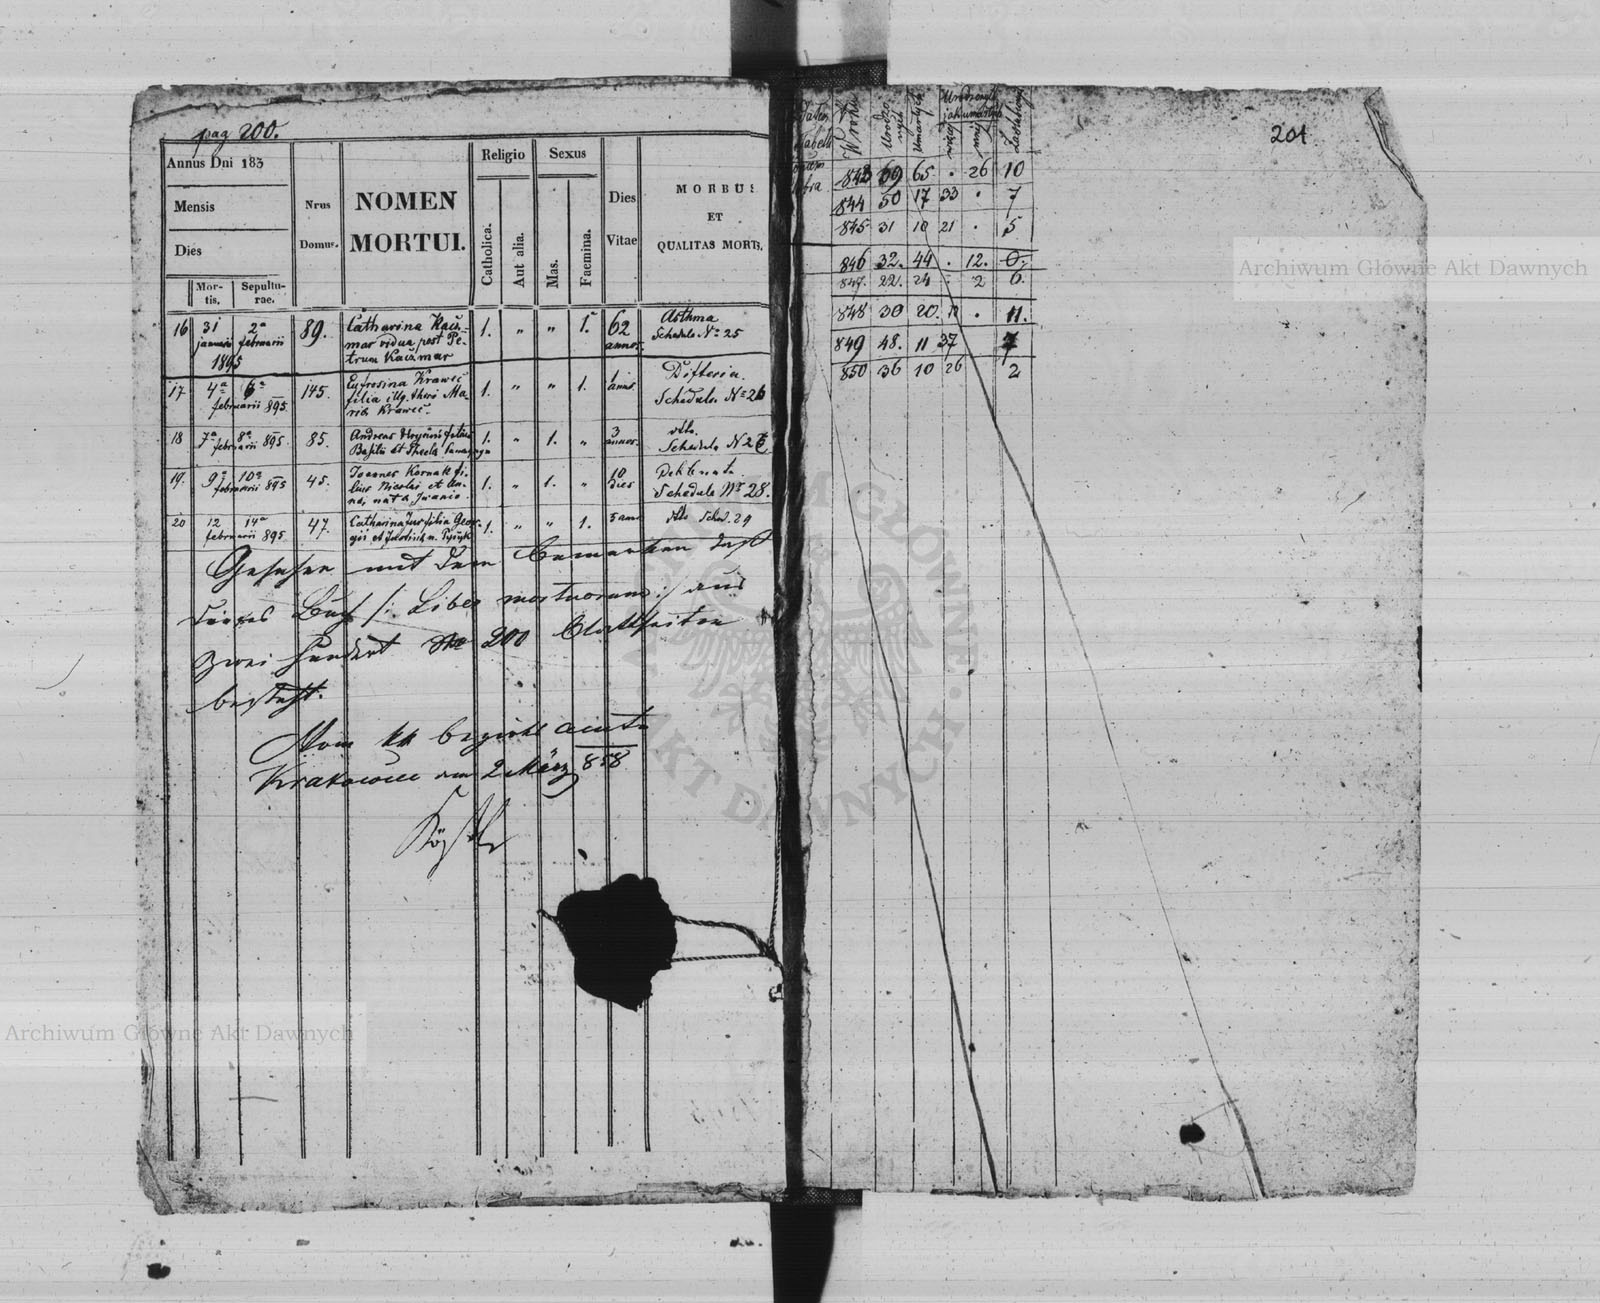 pag 200.
Annus Dni 183
Mensis
Dies
Mortis. Sepulturae.
Nrus Domus.
NOMEN
MORTUI.
Religio
Catholica. Aut alia.
Sexus
Mas. Faemina.
Dies
Vitae
MORBUS
ET
QUALITAS MORTIS
16 31 januarii 2a februarii 1895 89. Catharina Kacz-
mar vidua post Pe-
trum Kaczmar 1. " " 1. 62 annos. Asthma
Schedula No 25
17 4a 6a februarii 895. 145. Eufrosina Krawec
filia illg. thori Ma-
ria Krawec. 1. " " 1. 1 anni Difteria.
Schedula No 26
18 7a 8a februarii 895 85. Andreas filius
Basilii et Thecla 1. " 1. " 3 annos. dtto.
Schedula N 27
19. 9a 10a februarii 895 45. Joannes Kornak fi-
lius Nicolai et An-
na, nata Iwanio. 1. " 1. " 10 Dies
Schedula No 28.
20 12 14a februarii 895. 47. Catharina Jus filia Geor-
gii et 1. " " 1. 5 ann dtto Sched. 29
Gesehen mit dem Bemerken daß
dieses Buch /: Liber mortuorum :/ aus
zwei hundert 200 Blattseiten
besteht.
Vom kk Bezirksamte
Krakowiec am 2 März 858
201
W roku
Urodzonych
Umarłych
więcej
mniej
843 39 65 . 26 10
844 50 17 33 . 7
845 31 10 21 . 5
846 32. 44 . 12. 0.
847. 22. 24 . 2 6.
848 30 20. 10 . 11.
849 48. 11 37 7
850 36 10 26 2
Archiwum Główne Akt Dawnych
Archiwum Główne Akt Dawnych